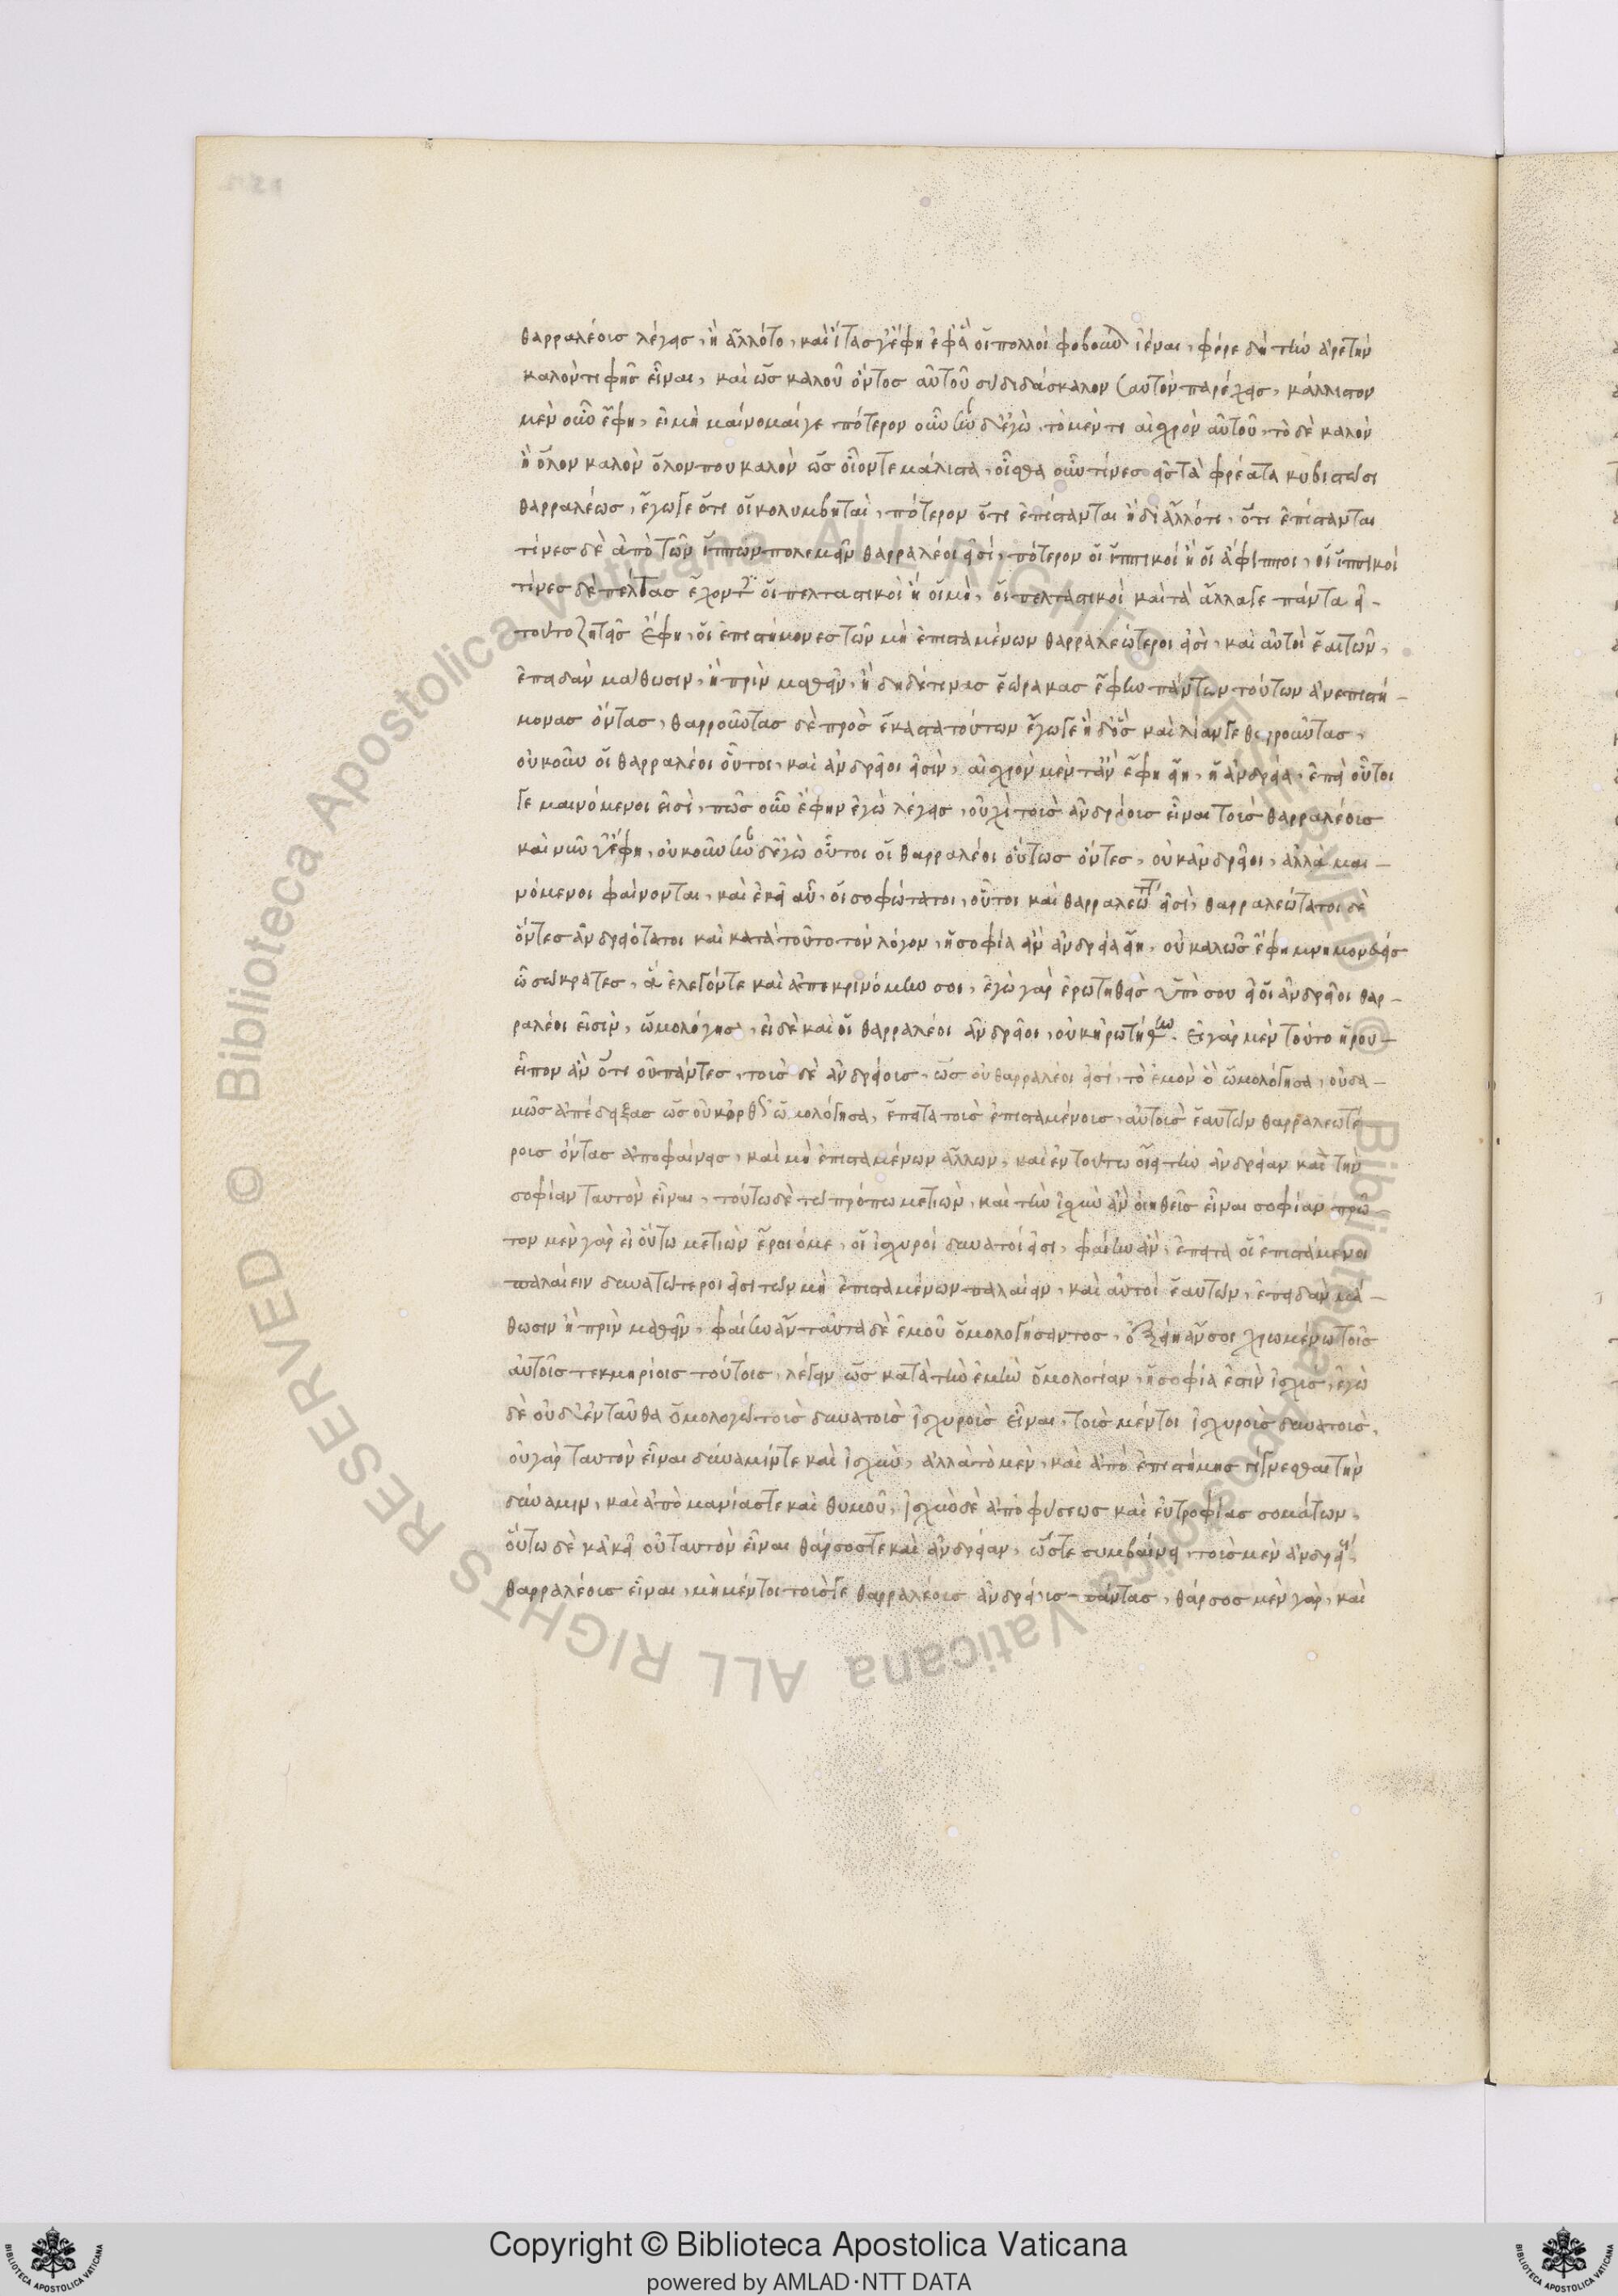 θαρραλέοις λέγεις, ἢ ἄλλό το, καὶ ἴτας γ' ἔφη ἐφ' ἃ οἱ πολλοὶ φοβοῦνται ἰέναι, φέρε δὴ τὴν ἀρετὴν
καλόν τι φῂς εἶναι, καὶ ὡς καλοῦ ὄντος αὐτοῦ σὺ διδάσκαλον σαυτὸν παρέχεις, κάλλιστον
μὲν οὖν ἔφη, εἰ μὴ μαίνομαί γε πότερον οὖν ἦν δ' ἐγὼ, τὸ μέν τι αἰσχρὸν αὐτοῦ, τὸ δὲ καλὸν
ἢ ὅλον καλὸν ὅλον που καλὸν ὡς οἷόν τε μάλιστα, οἶσθα οὖν τίνες εἰς τὰ φρέατα κυβιστῶσι
θαρραλέως, ἔγωγε ὅτι οἱ κολυμβηταὶ, πότερον ὅτι ἐπίστανται ἢ δι' ἄλλό τι, ὅτι ἐπίστανται
τίνες δὲ ἀπὸ τῶν ἵππων πολεμεῖν θαρραλέοι εἰσί, πότερον οἱ ἱππικοί ἢ οἱ ἄφιπποι, οἱ ἱππικοί
τίνες δὲ πέλτας ἔχοντες οἱ πελταστικοὶ ἢ οἱ μὴ, οἱ πελταστικοὶ καὶ τὰ ἄλλα γε πάντα εἰ
τοῦτο ζητεῖς ἔφη, οἱ ἐπιστήμονες τῶν μὴ ἐπισταμένων θαρραλεώτεροι εἰσὶ, καὶ αὐτοὶ ἑαυτῶν,
ἐπειδὰν μάθωσιν, ἢ πρὶν μαθεῖν, ἤδη δέ τινας ἑώρακας ἔφην πάντων τούτων ἀνεπιστή-
μονας ὄντας, θαρροῦντας δὲ πρὸς ἕκαστα τούτων ἔγωγε ἦ δ' ὃς καὶ λίαν γε θαρροῦντας,
οὐκοῦν οἱ θαρραλέοι οὗτοι, καὶ ἀνδρεῖοι εἰσὶν, αἰσχρὸν μέντ' ἂν ἔφη εἴη, ἡ ἀνδρεία, ἐπεὶ οὗτοι
γε μαινόμενοι εἰσὶ, πῶς οὖν ἔφην ἐγὼ λέγεις, οὐχὶ τοὺς ἀνδρείοις εἶναι τοὺς θαρραλέοις
καὶ νῦν γ' ἔφη, οὐκοῦν ἦν δ' ἐγὼ οὗτοι οἱ θαρραλέοι οὕτως ὄντες, οὐκ ἀνδρεῖοι, ἀλλὰ μαι-
νόμενοι φαίνονται, καὶ ἐκεῖ αὖ, οἱ σοφώτατοι, οὗτοι καὶ θαρραλεώτατοί εἰσὶ, θαρραλεώτατοι δὲ
ὄντες ἀνδρειότατοι καὶ κατὰ τοῦτο τὸν λόγον, ἡ σοφία ἂν ἀνδρεία εἴη, οὐ καλῶς ἔφη μνημονεύεις
ὦ σώκρατες, ἃ ἔλεγόν τε καὶ ἀπεκρινόμην σοι, ἐγὼ γὰρ ἐρωτηθεὶς ὑπό σου εἰ οἱ ἀνδρεῖοι θαρ-
ραλέοι εἰσὶν, ὡμολόγησα, εἰ δὲ καὶ οἱ θαρραλέοι ἀνδρεῖοι, οὐκ ἠρωτήθην. Εἰ γάρ μεν τοῦτο ἤρου-
εἶπον ἂν ὅτι οὐ πάντες, τοὺς δὲ ἀνδρείοις, ὡς οὐ θαρραλέοι εἰσὶ, τὸ ἐμὸν ὃ ὡμολόγησα, οὐδα-
μῶς ἀπέδειξας ὡς οὐκ ὀρθῶς ὡμολόγησα, ἔπειτα τοὺς ἐπισταμένοις, αὐτοὺς ἑαυτῶν θαρραλεωτέ
ροις ὄντας ἀποφαίνεις, καὶ μὴ ἐπισταμένων ἄλλων, καὶ ἐν τούτω οἴει τὴν ἀνδρείαν καὶ τὴν
σοφίαν ταυτὸν εἶναι, τούτω δὲ τῷ τρόπω μετιὼν, καὶ τὴν ἰσχὺν ἂν οἰηθεὶς εἶναι σοφίαν πρῶ-
τον μὲν γὰρ εἰ οὕτω μετιὼν ἔροιό με, οἱ ἰσχυροὶ δυνατοί εἰσι, φαίην ἄν, ἔπειτα οἱ ἐπιστάμενοι
παλαίειν δυνατώτεροι εἰσὶ τῶν μὴ ἐπισταμένων παλαίειν, καὶ αὐτοὶ ἑαυτῶν, ἐπειδὰν μά-
θωσιν ἢ πρὶν μαθεῖν, φαίην ἂν ταῦτα δὲ ἐμοῦ ὁμολογήσαντος, ἐξείη ἄν σοι χρωμένω τοῖς
αὐτοῖς τεκμηρίοις τούτοις, λέγειν ὡς κατὰ τὴν ἐμὴν ὁμολογίαν, ἡ σοφία ἐστὶν ἰσχὺς, ἐγὼ
δὲ οὐδ' ἐνταῦθα ὁμολογῶ τοὺς δυνατοὺς ἰσχυροὺς εἶναι, τοὺς μέντοι ἰσχυροὺς δυνατοὺς,
οὐ γὰρ ταυτὸν εἶναι δύναμίν τε καὶ ἰσχὺν, ἀλλὰ τὸ μὲν, καὶ ἀπὸ ἐπιστήμης γίγνεσθαι τὴν
δύναμιν, καὶ ἀπὸ μανίας τε καὶ θυμοῦ, ἰσχὺς δὲ ἀπὸ φύσεως καὶ εὐτροφίας σομάτων,
οὕτω δὲ κἀκεῖ οὐ ταυτὸν εἶναι θάρσος τε καὶ ἀνδρείαν, ὥστε συμβαίνει, τοὺς μὲν ἀνδρείους
θαρραλέοις εἶναι, μὴ μέντοι τούς γε θαρραλέοις ἀνδρείοις πάντας, θάρσος μὲν γὰρ, καὶ
Copyright © Biblioteca Apostolica Vaticana
powered by AMLAD·NTT DATA